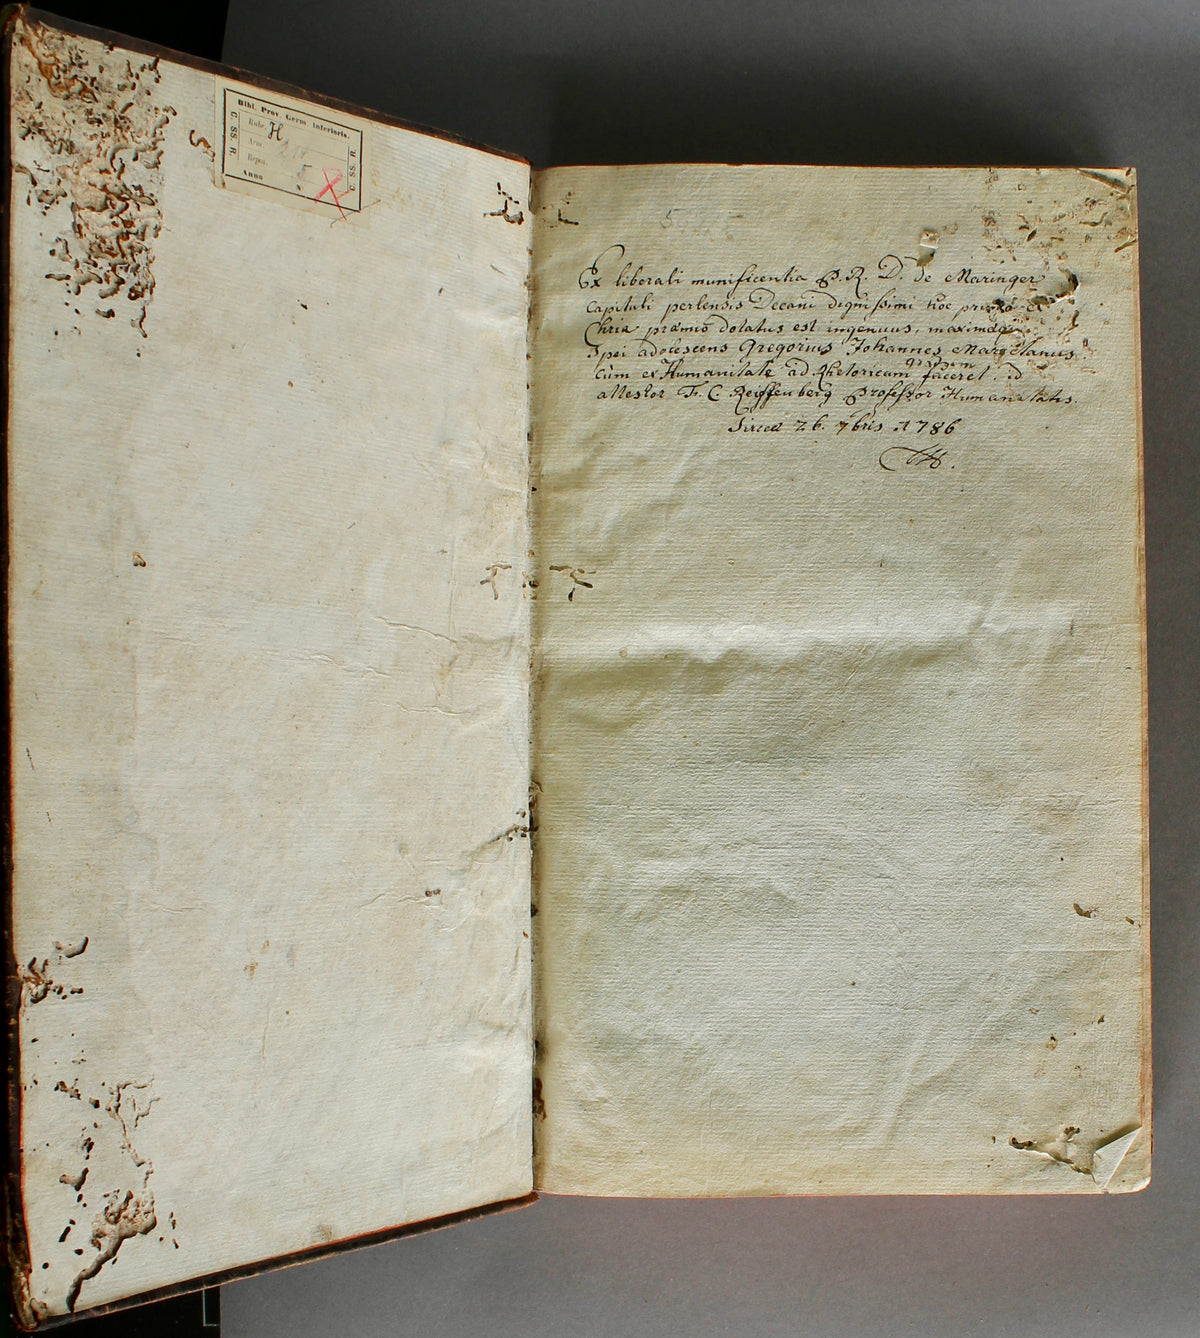 Bibl. Prov. Germ. Inferioris.
C. SS. R.
C. SS. R.
Rubr. H
Arm.
Repos. 5
Anno
Ex liberali munificentia P. R. D. de Maringer
Capituli perlensis Decani dignissimi hoc primo ex
Chria præmio dotatus est ingenuus, maximæq
Spei adolescens Gregorius Johannes Margelanus
gradum
Cùm ex Humanitate ad Rhetoricam faceret. id
attestor F. C. Reiffenberg Professor Humanitatis.
Sircea 26. 7bris 1786